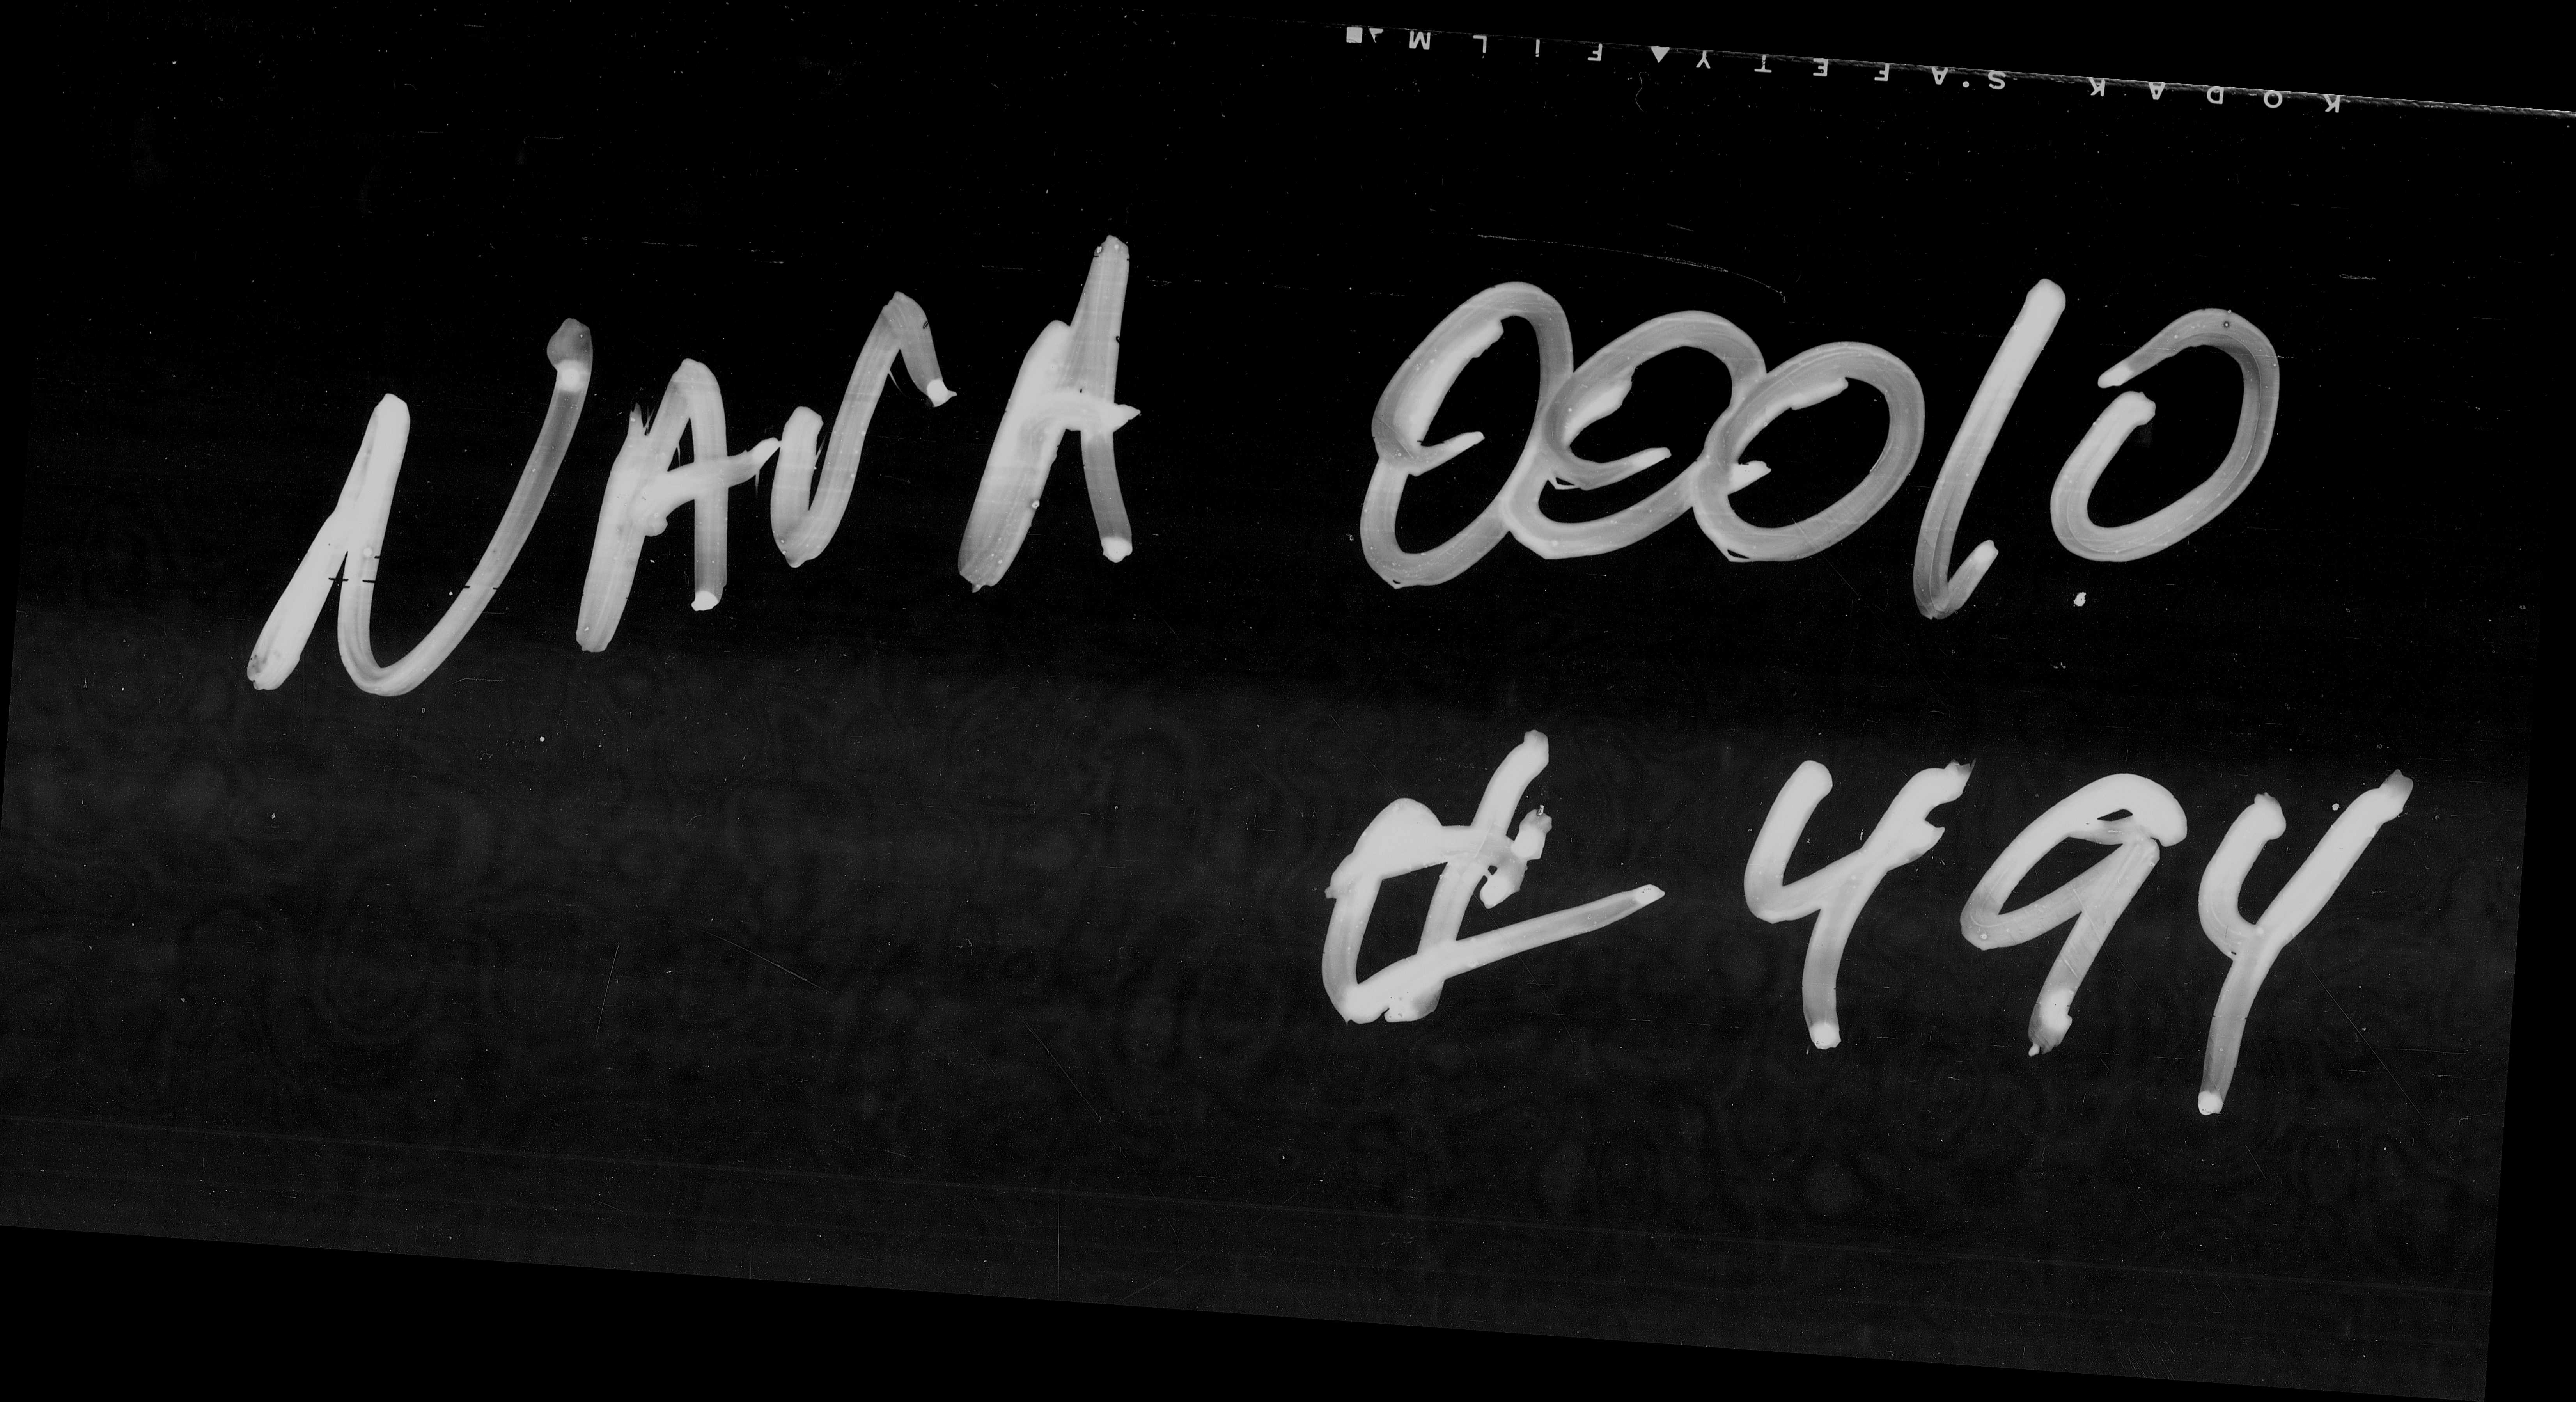 KODAK SAFETY FILM
NAVA 00010
₵ 494